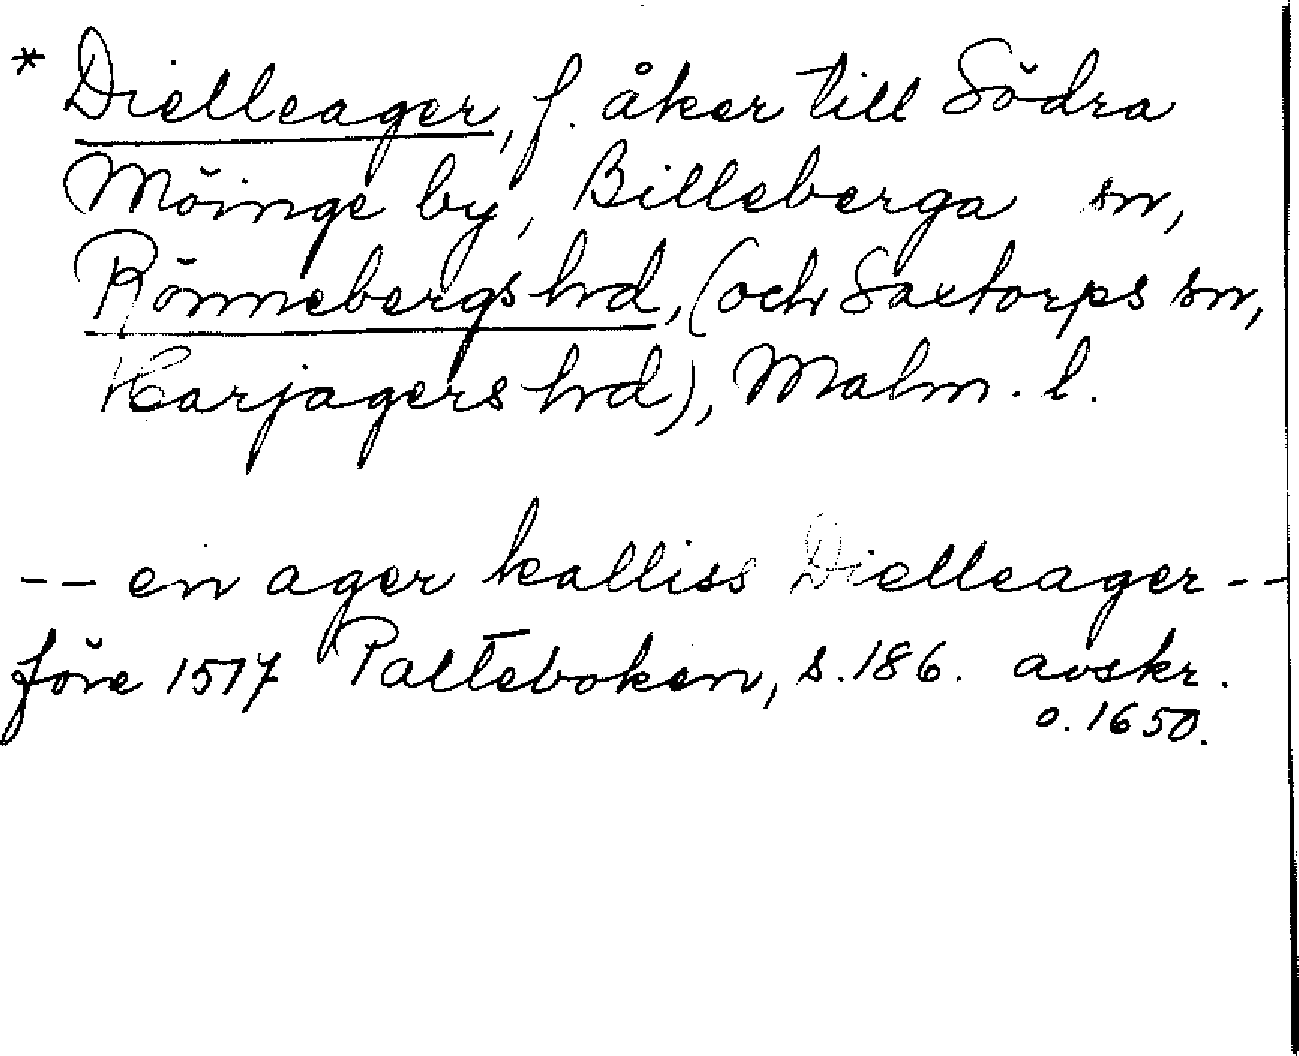 * Dielleager, f. åker till Södra
Möinge by, Billeberga sn,
Rönnebergs hrd, (och Saxtorps sn,
Harjagers hrd), Malm. l.
-- en ager kalliss Dielleager --
före 1517 Palteboken, s. 186. avskr.
o. 1650.